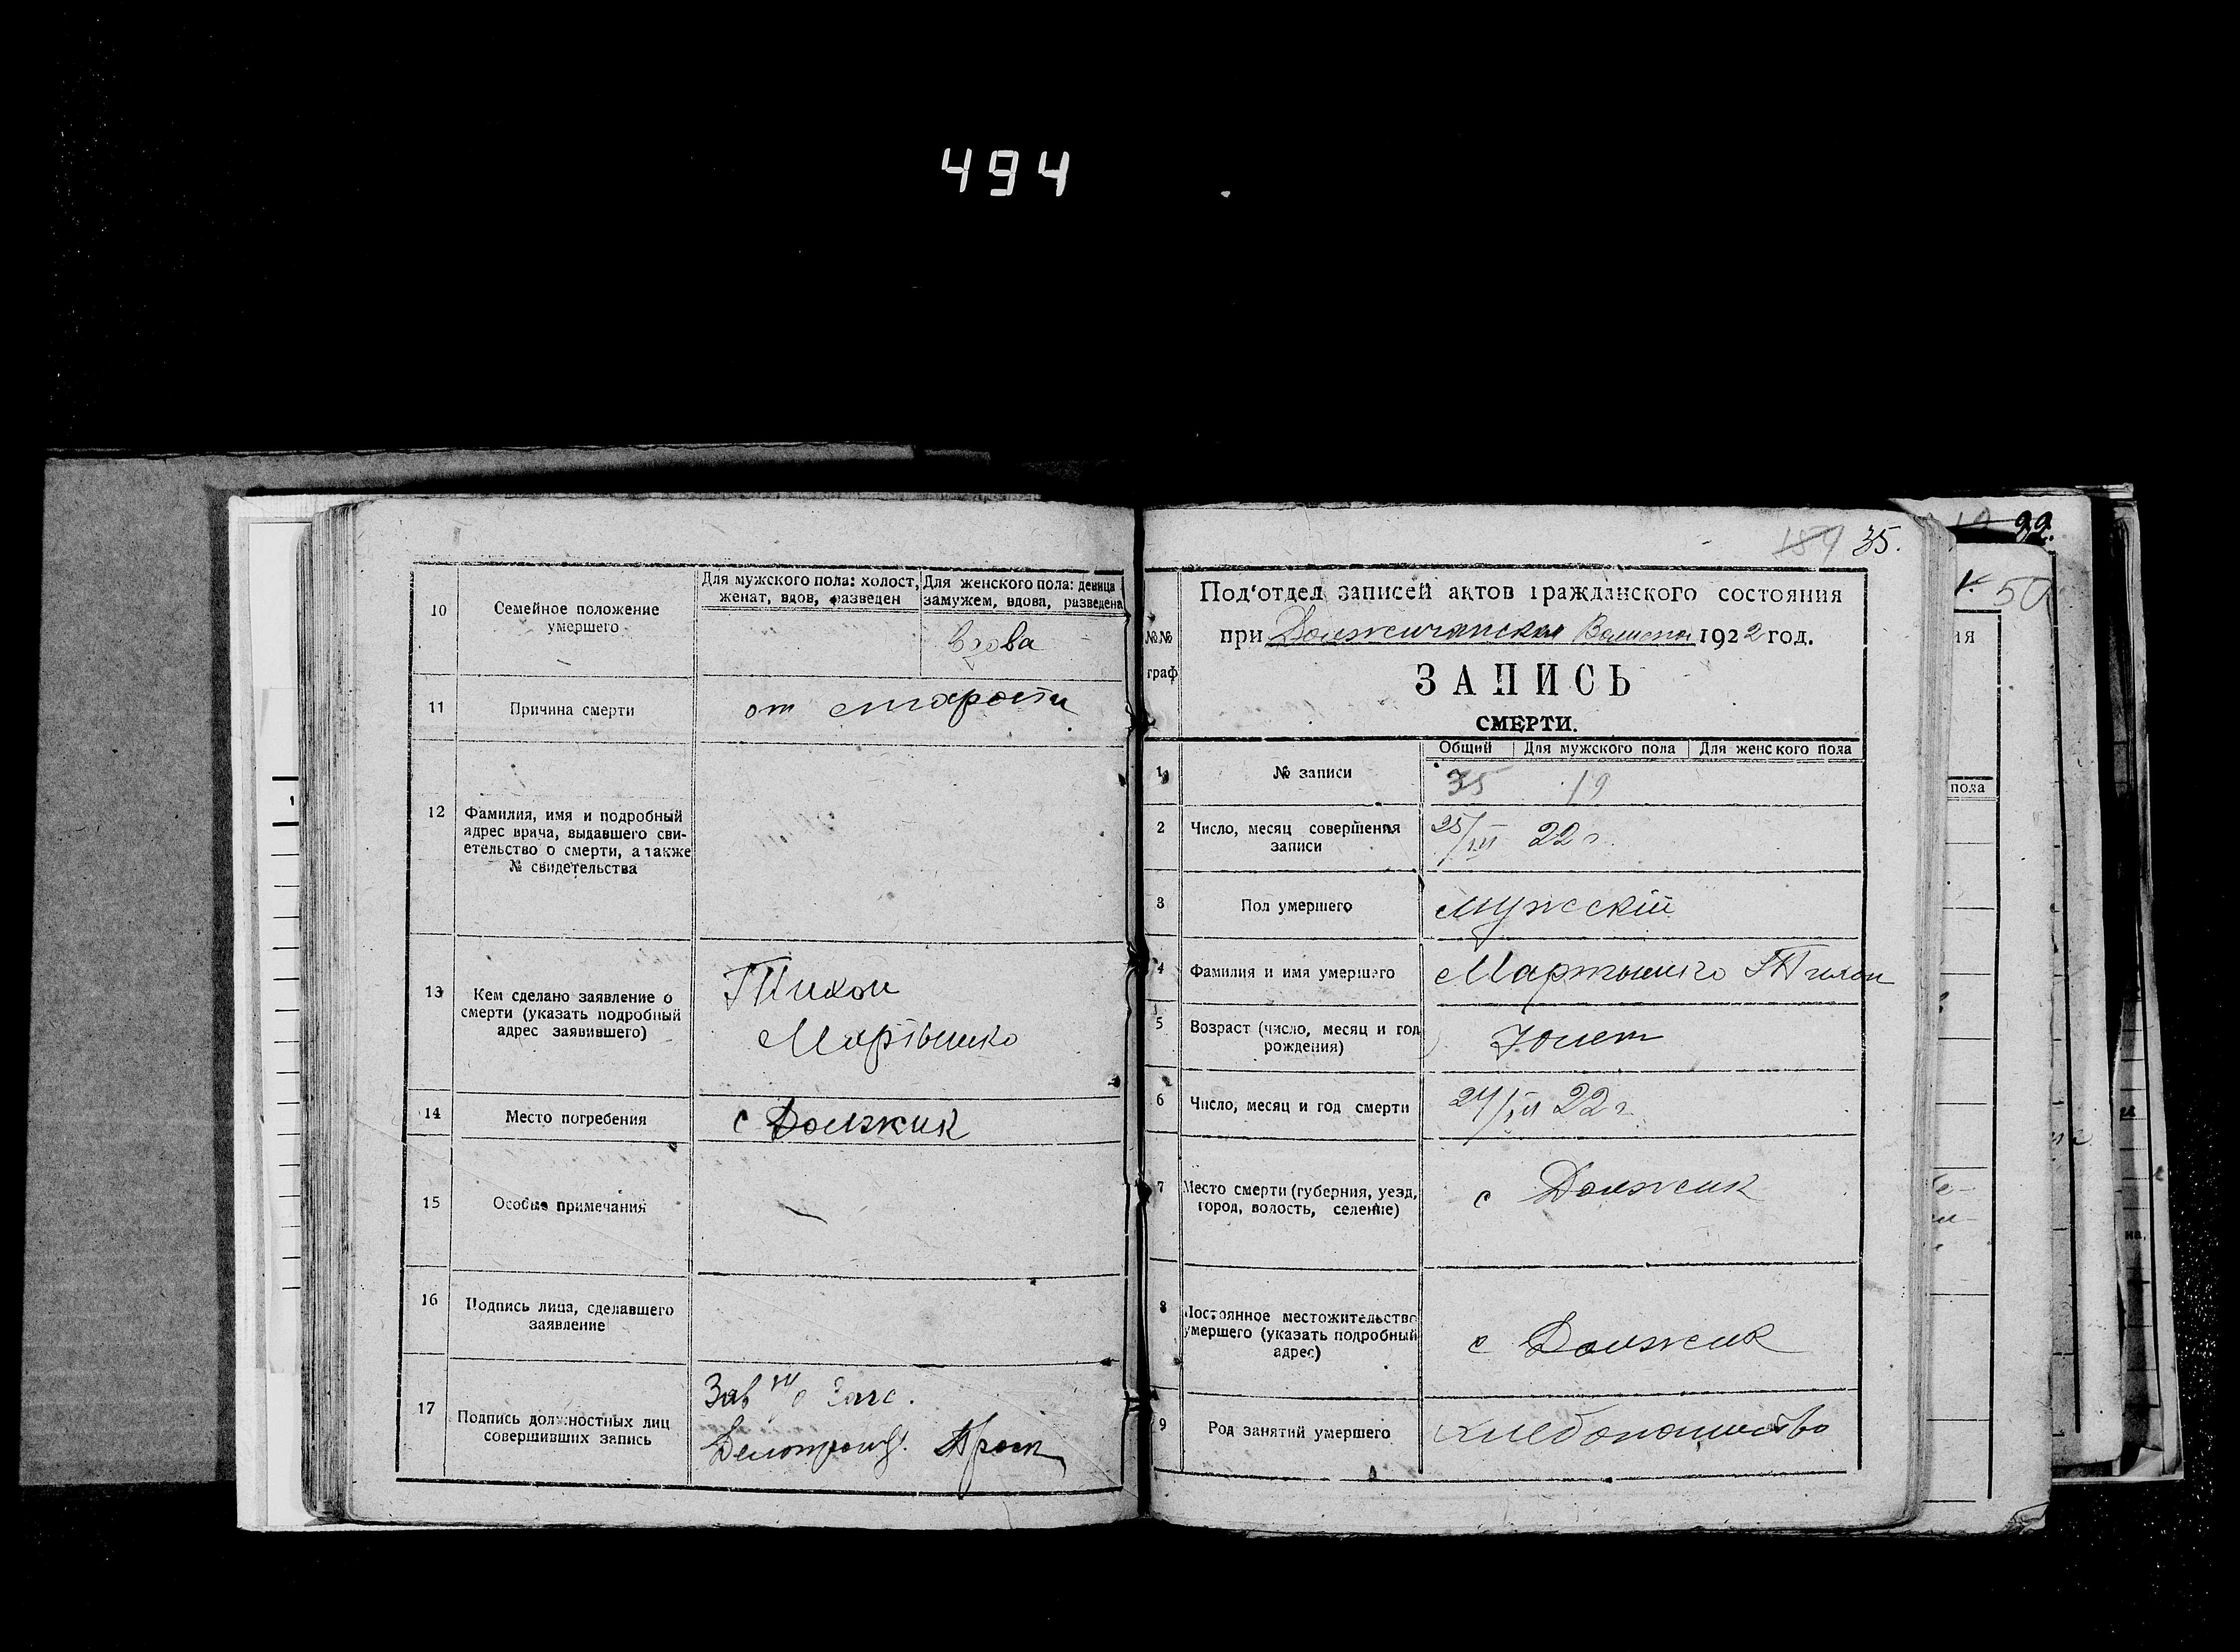 494
10
Семейное положение
умершего
Для мужского пола: холост,
женат, вдов, разведен
Для женского пола: девица
замужем, вдова, разведена
вдова
11
Причина смерти
от старости
12
Фамилия, имя и подробный
адрес врача, выдавшего сви-
етельство о смерти, а также
№ свидетельства
13
Кем сделано заявление о
смерти (указать подробный
адрес заявившего)
Тихон
Мартынко
14
Место погребения
с Должик
15
Особые примечания
—
16
Подпись лица, сделавшего
заявление
17
Подпись должностных лиц
совершивших запись
Зав
Загс.
159 35.
№№
граф
Под‘отдел записей актов гражданского состояния
при Должичанская 1922 год.
ЗАПИСЬ
СМЕРТИ.
Общий Для мужского пола Для женского пола
1
№ записи
35 19
2
Число, месяц совершения
записи
25/III 22 г.
3
Пол умершего
мужскій
4
Фамилия и имя умершего
Мартынко Тихон
5
Возраст (число, месяц и год
рождения)
70 лет
6
Число, месяц и год смерти
24/III 22 г.
7
Место смерти (губерния, уезд,
город, волость, селение)
с Должик
8
Постоянное местожительство
умершего (указать подробный
адрес)
с Должик
9
Род занятий умершего
хлебопашество
22.
50
ия
пола
на,